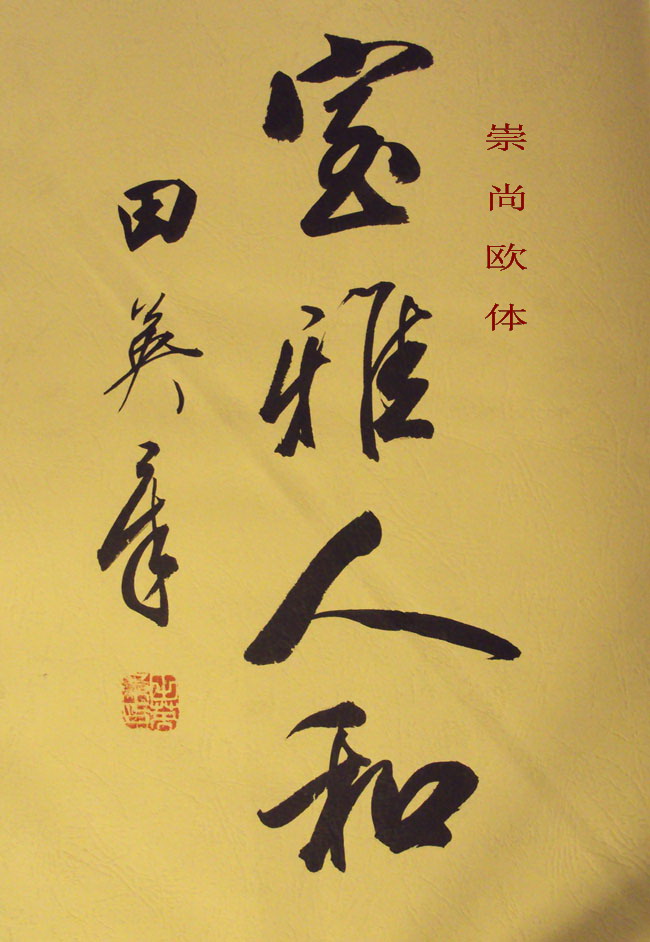 崇尚欧体
室雅人和
田英章